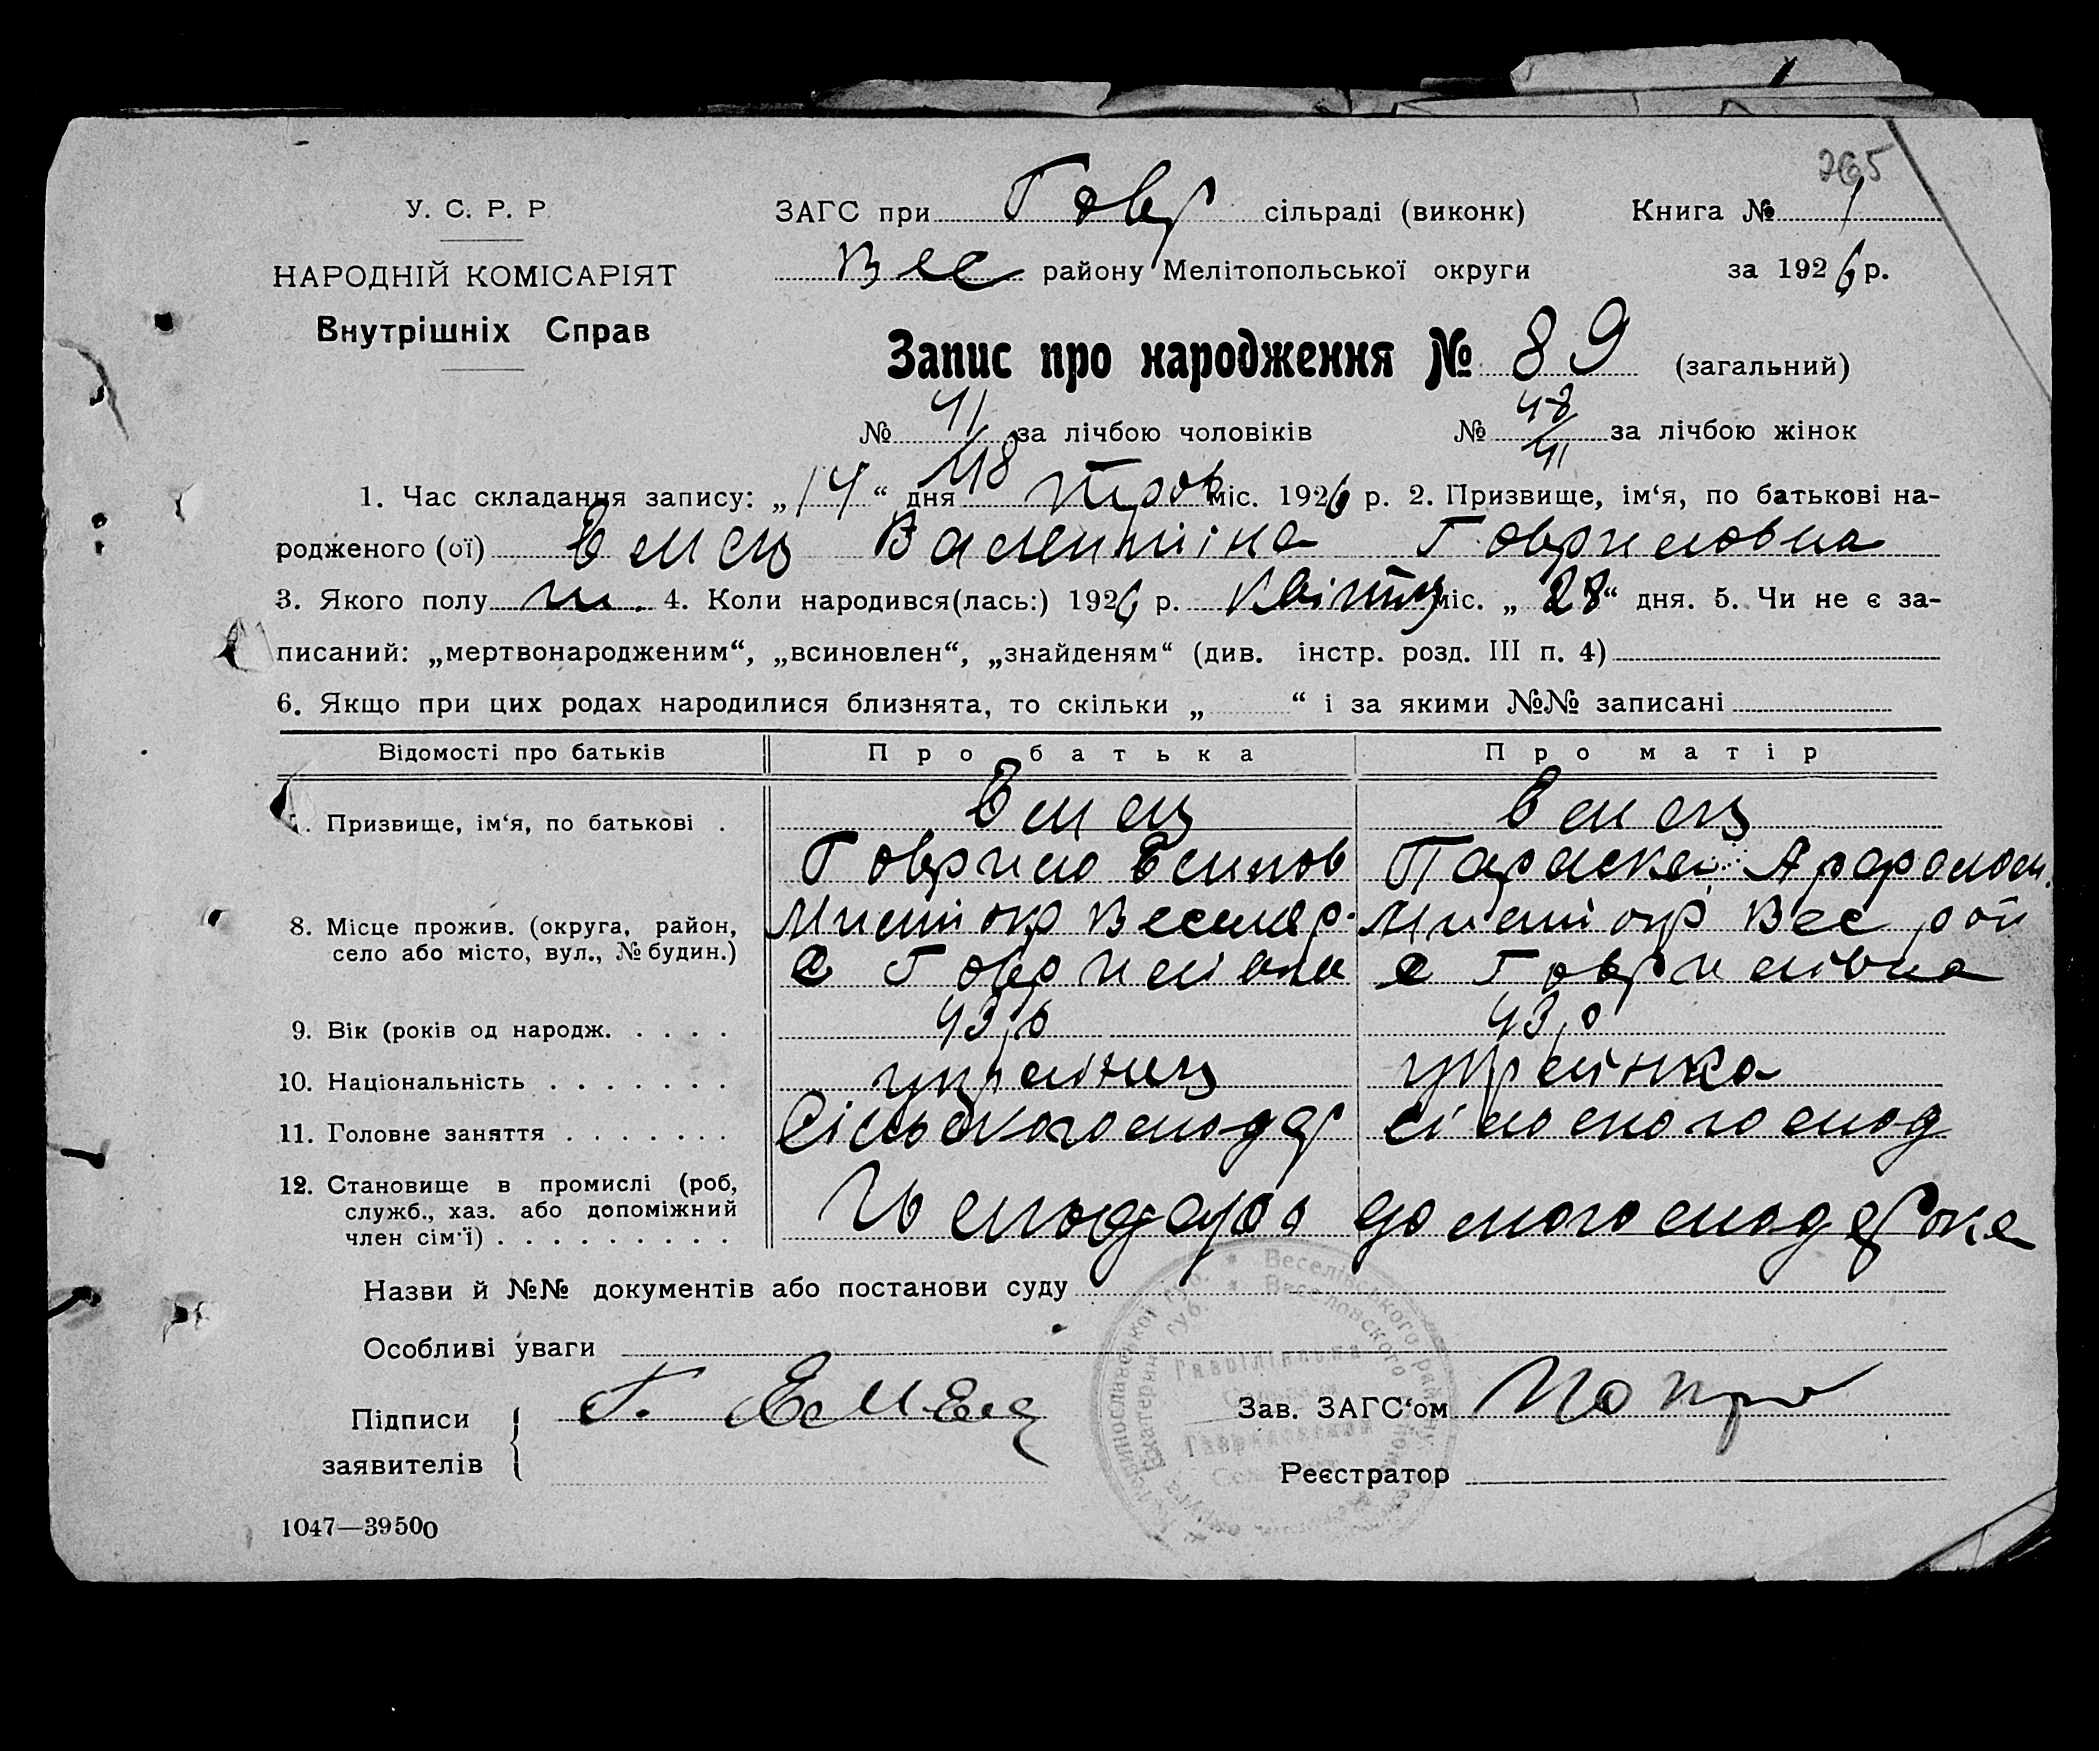 265
У. С. Р. Р
НАРОДНІЙ КОМІСАРІЯТ
Внутрішніх Справ
ЗАГС при Гавр сільраді (виконк) Книга № 1
Вес району Мелітопольської округи за 1926 р.
Запис про народження № 89 (загальний)
№ 41 48 за лічбою чоловіків № 48 41 за лічбою жінок
1. Час складання запису: „14“ дня Трав міс. 1926 р. 2. Призвище, ім‘я, по батькові на-
родженого (ої) Емец Валентіна Гавриловна
3. Якого полу ж. 4. Коли народився(лась:) 1926 р. Квітня міс. „28“ дня. 5. Чи не є за-
писаний: „мертвонародженим“, „всиновлен“, „знайденям“ (див. інстр. розд. III п. 4)
6. Якщо при цих родах народилися близнята, то скільки „ “ і за якими №№ записані
Відомості про батьків Про батька Про матір
. Призвище, ім‘я, по батькові . Емец Емец
Гаврило Параскей
8. Місце прожив. (округа, район, село або місто, вул., № будин.) окр окр Вес рай
с Гаврилівка с Гаврилівка
9. Вік (років од народж. . . . . 43 43
10. Національність . . . . . . . українец українка
11. Головне заняття . . . . . . . Сільськогосподар сільськогоспод
12. Становище в промислі (роб,
служб., хаз. або допоміжний
член сім‘ї) . . . . . . . . . . Господарь домогосподарка
Назви й №№ документів або постанови суду
Особливі уваги
Підписи
заявителів
Г. Емец
Зав. ЗАГС‘ом
Реєстратор
Веселівського району
Веселовского
1047—39500